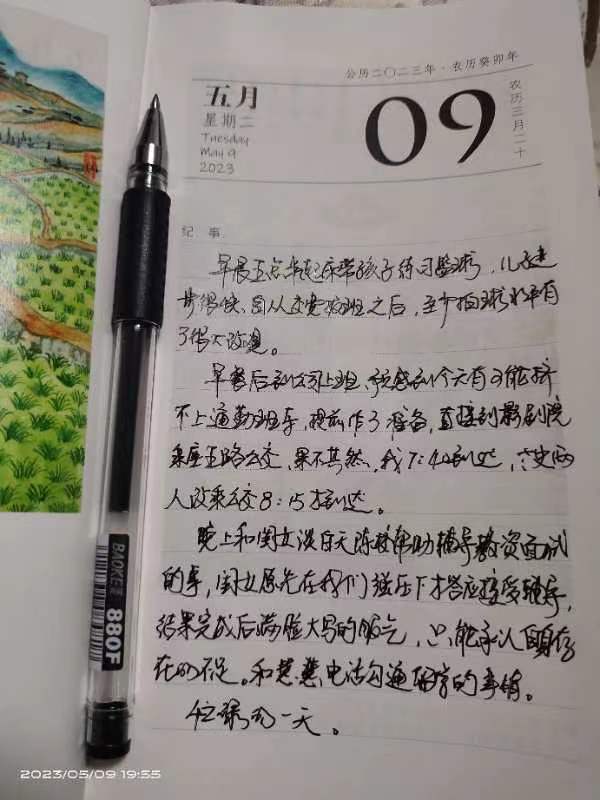 公历二〇二三年·农历癸卯年
五月
星期二
Tuesday
May 9
2023
09
农历三月二十
纪 事
早晨五点半起床带孩子练习篮球,儿子进
步很快、自从交费班之后,至少拍球水平有
了很大改进。
早餐后到公司上班、预感到今天有可能挤
不上通勤班车,提前作了准备,直接到影剧院
乘座五路公交,果不其然,我7:40到达,
人改乘公交8:15才到达。
晚上和闺女谈白天陈校帮助辅导教资面试
的事,闺女原先在我们强压下才答应接受辅导,
结果完成后满脸大写的服气,只能承认自身存
在的不足。和慧慧电话沟通的事情。
忙碌的一天。
BAOKE
880F
2023/05/09 19:55